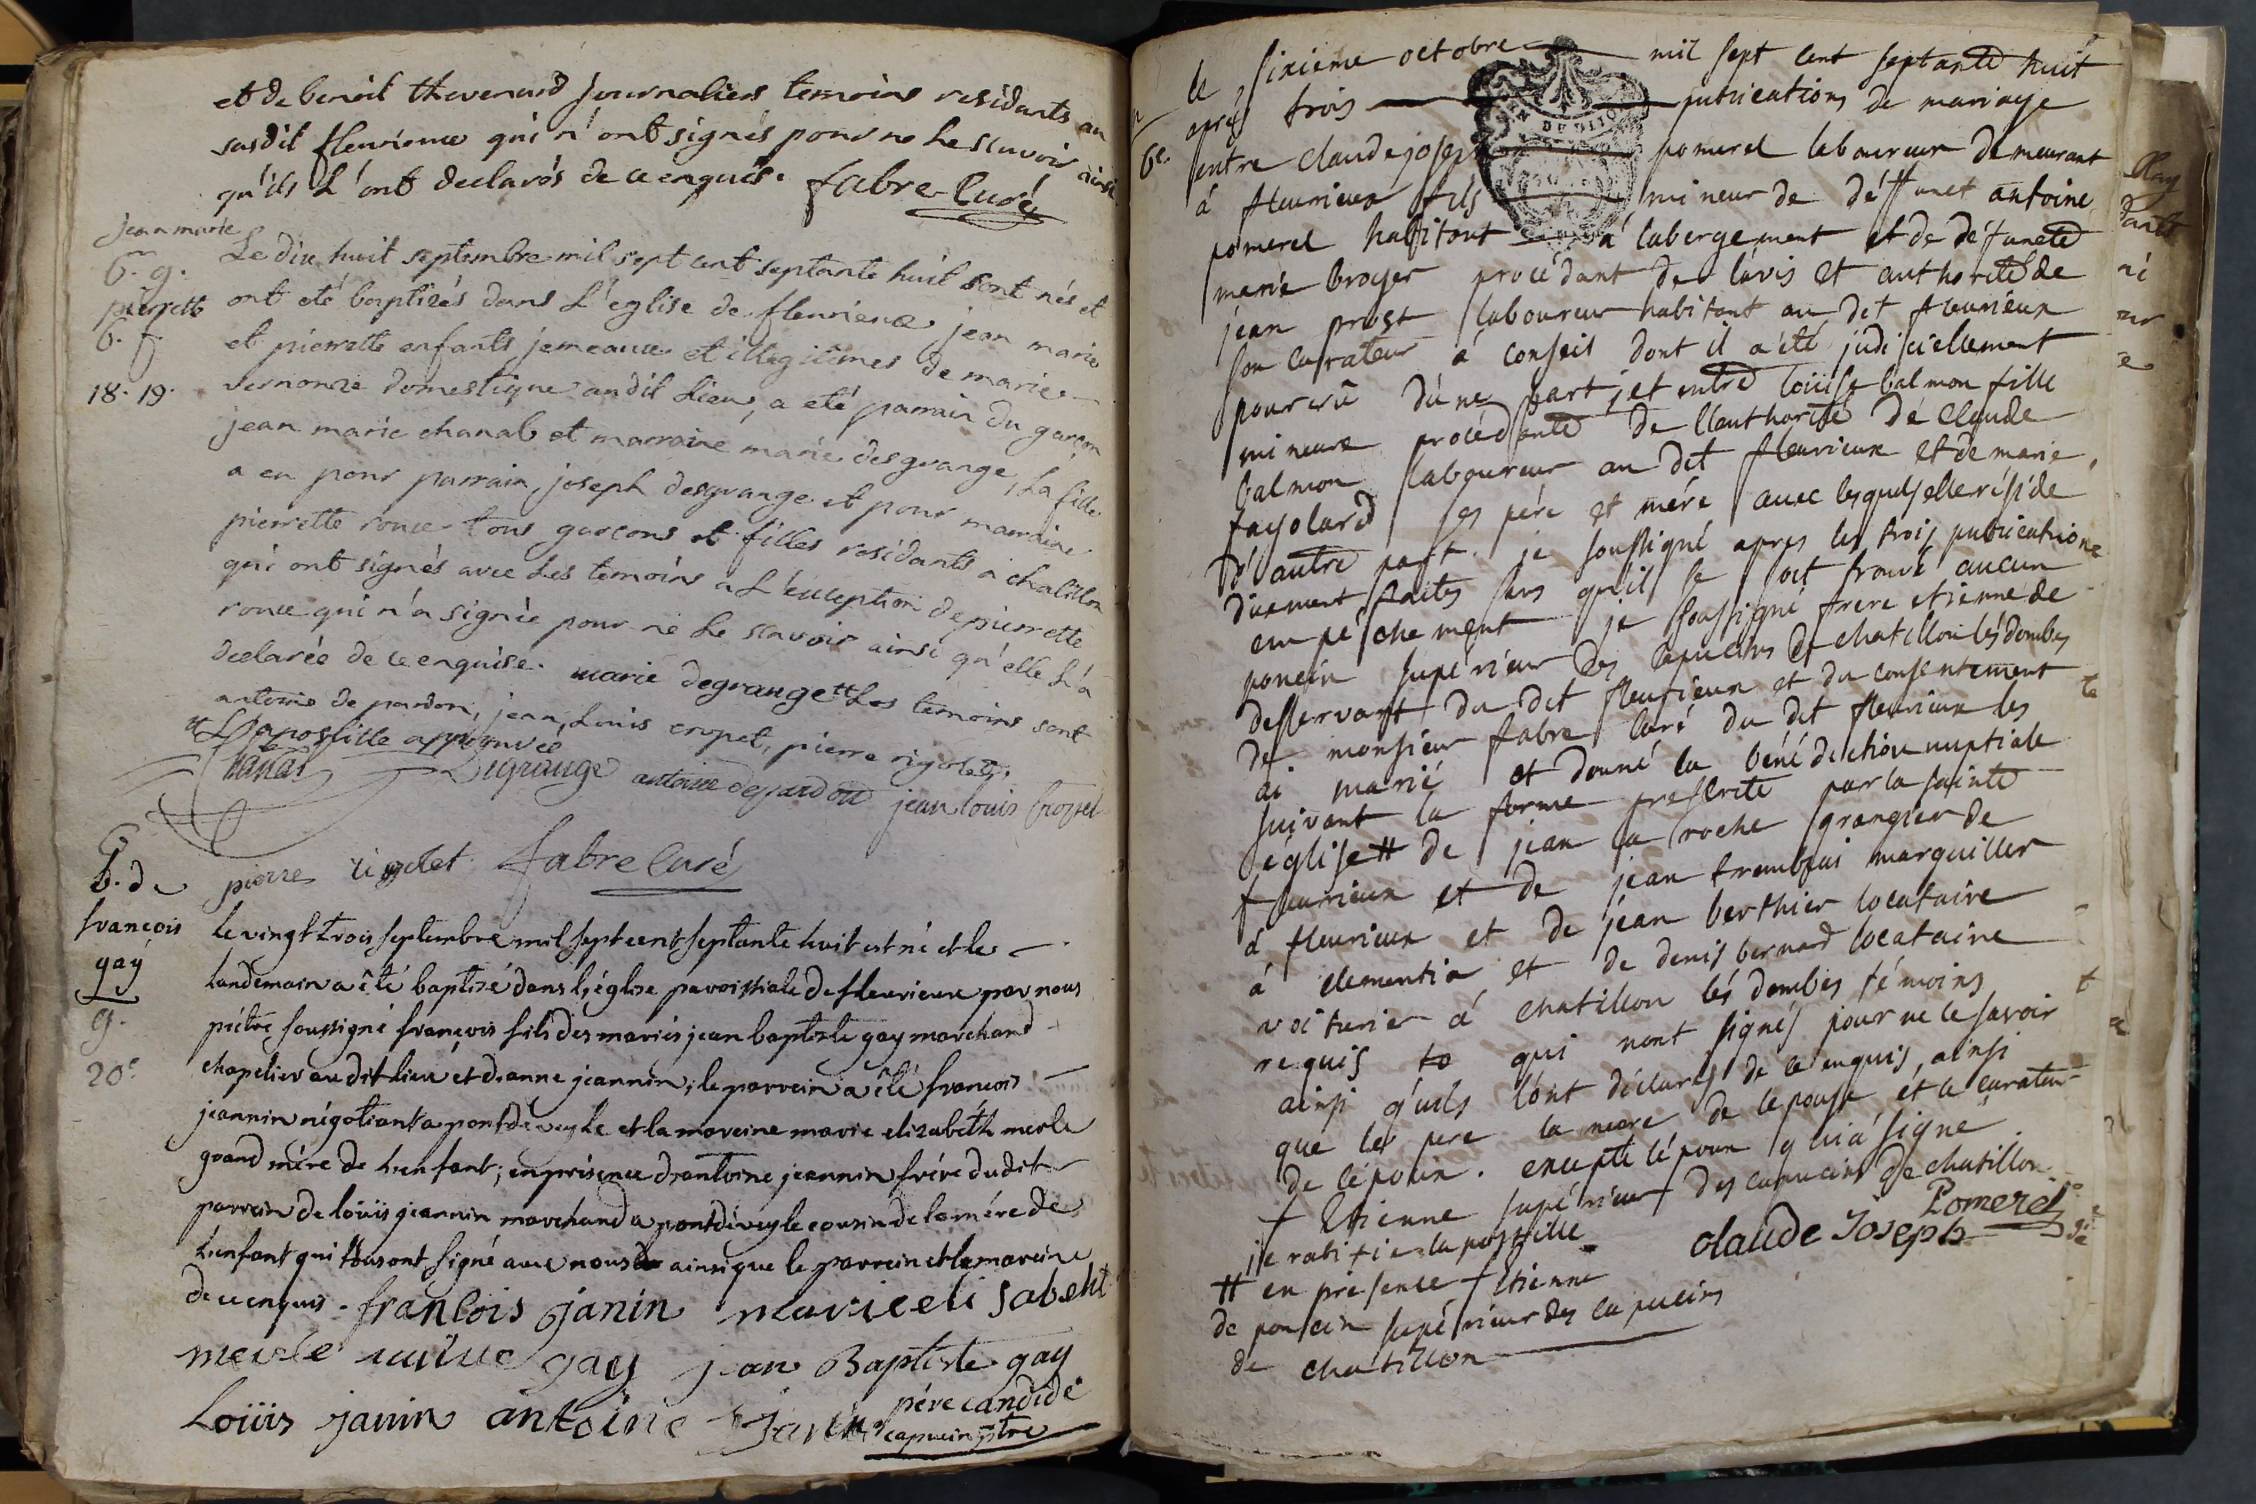 et de benoit thevenard journaliers temoins residants au
susdit fleurieux qui n'ont signés pour ne le scavoir ainsi
qu'ils l'ont declarés de ce enquis. fabre Curé
jean marie
b. g.
pierrette
b. f.
18. 19.
Le dix huit septembre mil sept cent septante huit sont nés et
ont eté baptisés dans l'eglise de fleurieux jean marie
et pierrette enfants jemeaux et illegitimes de marie
domestique audit lieu, a eté parrain du garçon
jean marie chanal et marraine marie desgrange, la fille
a eu pour parrain, joseph desgrange et pour marraine
pierrette roux tous garcons et filles residants a chatillon
qui ont signés avec les temoins a l'exception de pierrette
roux qui n'a signée pour ne le scavoir ainsi qu'elle l'a
declarée de ce enquise. marie degrange # Les temoins sont
antoine de pardon, jean Louis cropet, pierre rigolet.
# L'apostille approuvée
Chanal Degrange antoine depardon jean louis Cropet
pierre rigolet fabre Curé
b. de
françois
gay
g.
20e
le vingt trois septembre mil sept cent septante huit est né et le
landemain a été baptisé dans l'église paroissiale de fleurieux par nous
prétre soussigné françois fils des mariés jean baptiste gay marchand
chapelier au dit lieu et d'anne jeannin; le parrein a été françois
jeannin négotiant a pont de veyle et la mareine marie elizabeth merle
grand mére de l'enfant; en présence d'antoine jeannin frére dudit
parrein de loüis jeannin marchand a pont de veyle cousin de la mére de
l'enfant qui tous ont signé avec nous ainsi que le parrein et la mareine
de ce enquis. françois janin marie eli sabeht
merle veuve gay jean Baptiste gay
Loüis janin antoine Janin père candide
capucin ptre
6e.
le sixieme octobre mil sept cent septante huit
aprés trois publications de mariage
entre Claude joseph pomerel laboureur demeurant
á fleurieux fils mineur de déffunct antoine
pomerel habitant á labergement et de défuncte
marie broyer procédant de lávis et authorité de
jean prost laboureur habitant au dit fleurieux
son curateur á conseis dont il a été judiciellement
pourvû dúne part; et entre loüise balmon fille
mineure procédante de l'authorité de Claude
balmon laboureur au dit fleurieux et de marie
fayolard ses pére et mére avec lesquels elle réside
d'autre part. je soussigné apres les trois publications
duement faites sans qu'il se soit trouvé aucun
empéschement je soussigné frere etienne de
poncin supérieur des capucins de chatillon lés dombes
desservant du dit fleurieux et du consentement
de monsieur fabre curé du dit fleurieux les
ai marié et donné la bénédiction nuptiale
suivant la forme prescrite par la sainte
église # de jean la roche grangier de
fleurieux et de jean marguiller
á fleurieux et de jean berthier locataire
á clementia et de denis bernard locataire
voiturier á chatillon lés dombes témoins
requis qui nont signés pour ne le savoir
ainsi quils lónt déclarés de ce enquis, ainsi
que les pere la mere de lepouse et le curateur
de lépoux. excepté lépoux qui á signé
f Etienne supérieur des capucins de chatillon
je ratifie la postille claude Joseph Pomerel
# en présence f Etienne
de poncin supérieur des capucins
de chatillon